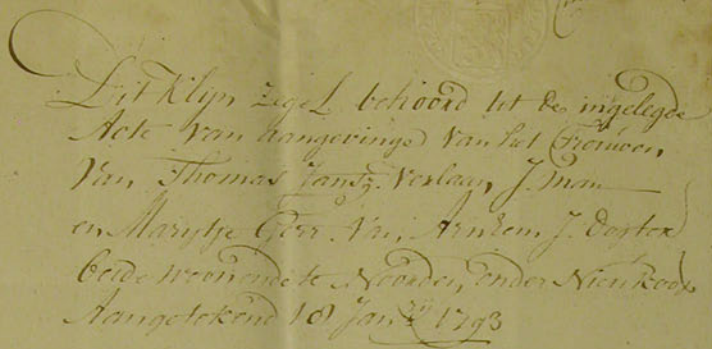 Dit Klijn Zegel behoord tot de ingelegde
Acte van aangevinge van het Trouwen
van Thomas Jansz. Verlaan J. man
en Marytje Gerr. Van Arnhem J. dogter
beide woonende te Noorden, onder Nieukoop
Aangetekend 18 Janrij 1793